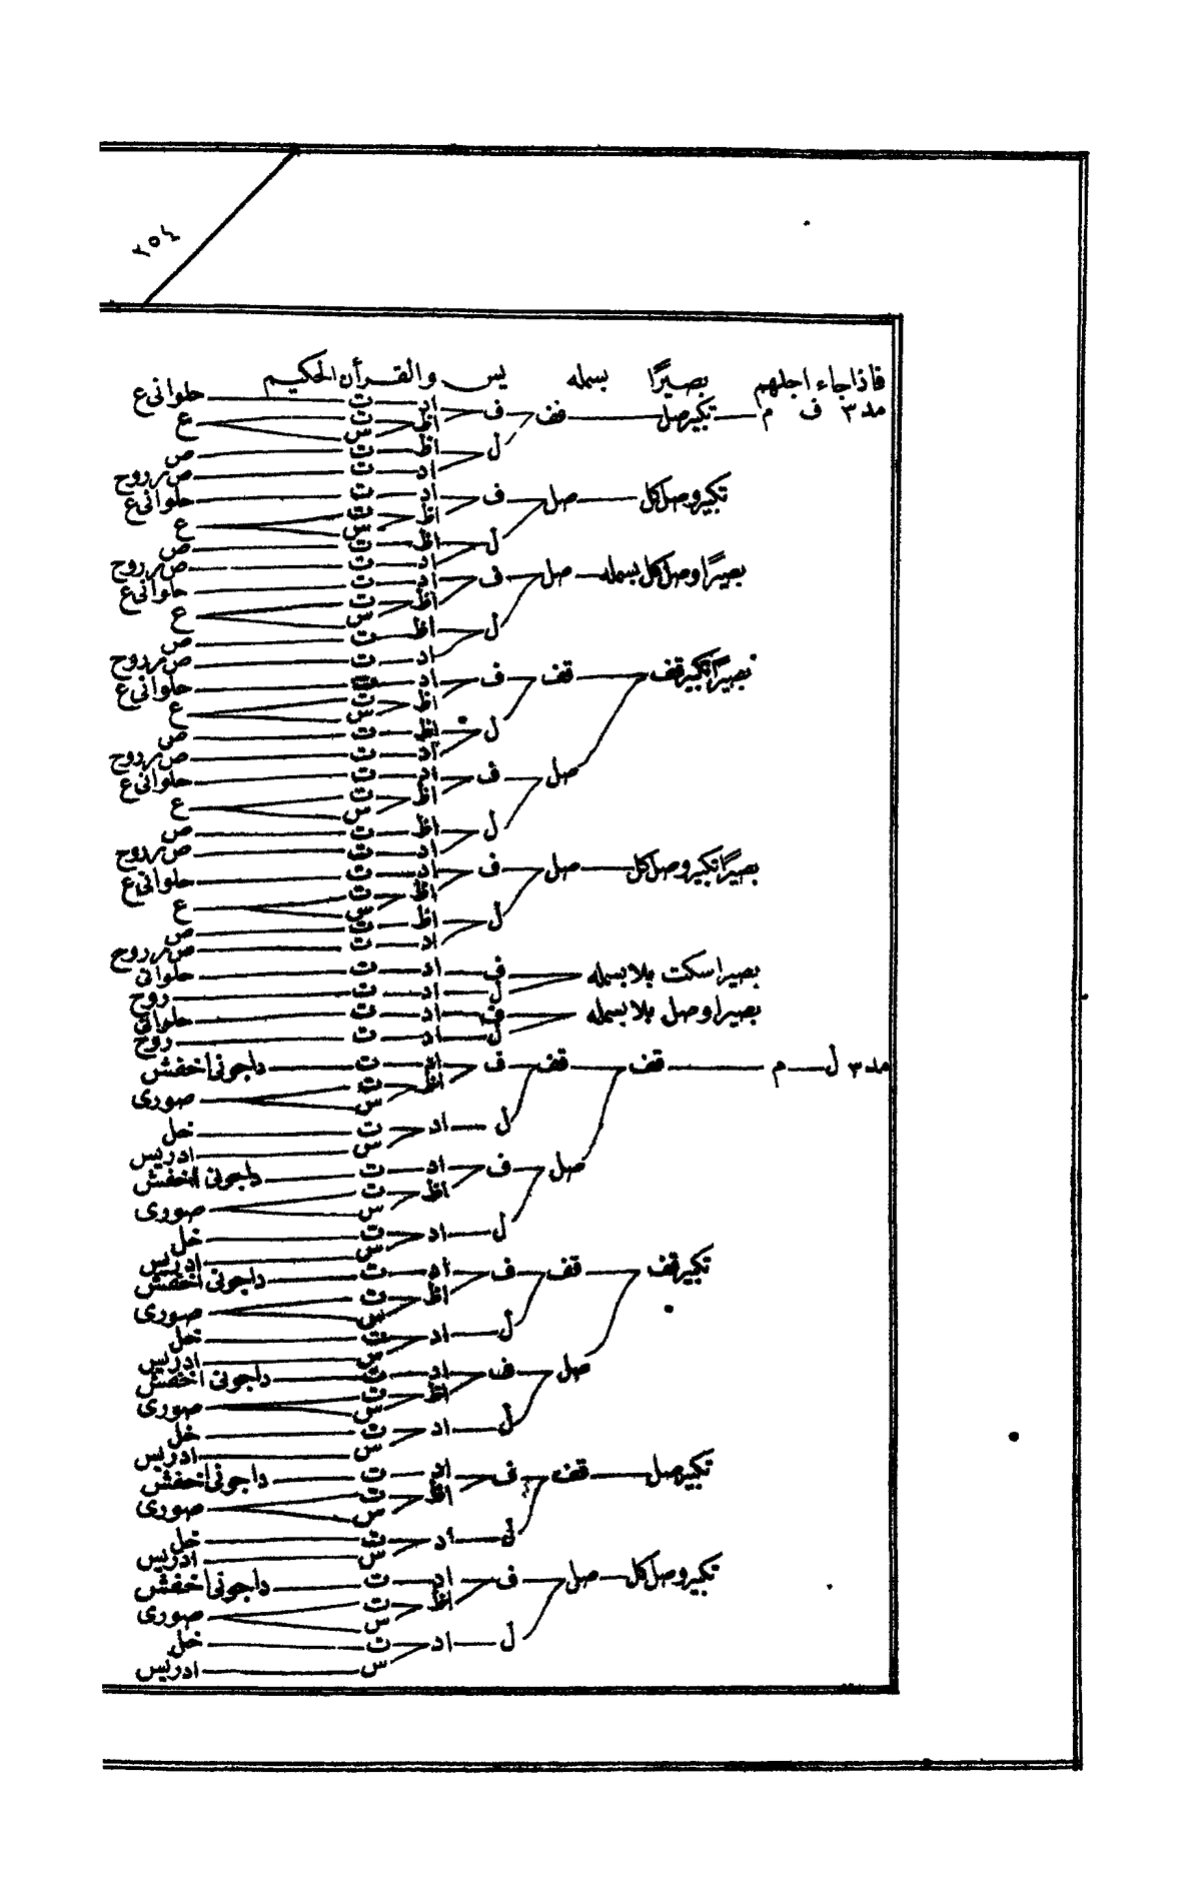 ٢٥٤
فاذاجاء اجلهم بصيرًا بسمله يس والقرأن الحكيم
مد ٣ ف م تكبيرصل قف ف اد ت حلوانى ع
اظ ت س ع
ل اظ ت ص
اد ت ص مر روح
تكبيروصل كل صل ف اد ت حلوانى ع
اظ ت س ع
ل اظ ت ص
اد ت ص مر روح
بصيرًا وصل كل بسمله صل ف اد ت حلوانى ع
اظ ت س ع
ل اظ ت ص
اد ت ص مر روح
بصيرًا تكبيرقف قف ف اد ت حلوانى ع
اظ ت س ع
ل اظ ت ص
اد ت ص مر روح
صل ف اد ت حلوانى ع
اظ ت س ع
ل اظ ت ص
اد ت ص مر روح
بصيرًا تكبيروصل كل صل ف اد ت حلوانى ع
اظ ت س ع
ل اظ ت ص
اد ت ص مر روح
بصيرا سكت بلابسمله ف اد ت حلوانى
ل اد ت روح
بصيرا وصل بلابسمله ف اد ت حلوانى
ل اد ت روح
مد ٣ ل م قف قف ف اد ت داجونى اخفش
اظ ت س صورى
ل اد ت خل
س ادريس
صل ف اد ت داجونى اخفش
اظ ت س صورى
ل اد ت خل
س ادريس
تكبيرقف قف ف اد ت داجونى اخفش
اظ ت س صورى
ل اد ت خل
س ادريس
صل ف اد ت داجونى اخفش
اظ ت س صورى
ل اد ت خل
س ادريس
تكبيرصل قف ف اد ت داجونى اخفش
اظ ت س صورى
ل اد ت خل
س ادريس
تكبيروصل كل صل ف اد ت داجونى اخفش
اظ ت س صورى
ل اد ت خل
س ادريس